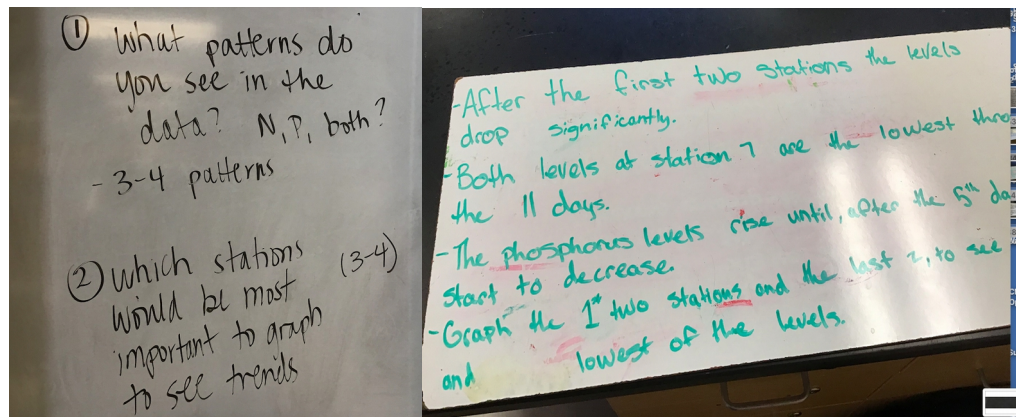 ① What patterns do
you see in the
data? N, P, both?
- 3-4 patterns
② Which stations (3-4)
would be most
important to graph
to see trends
-After the first two stations the levels
drop significantly.
-Both levels at station 7 are the lowest thro
the 11 days.
-The phosphorus levels rise until, after the 5th da
start to decrease.
-Graph the 1st two stations and the last 2, to see
and lowest of the levels.